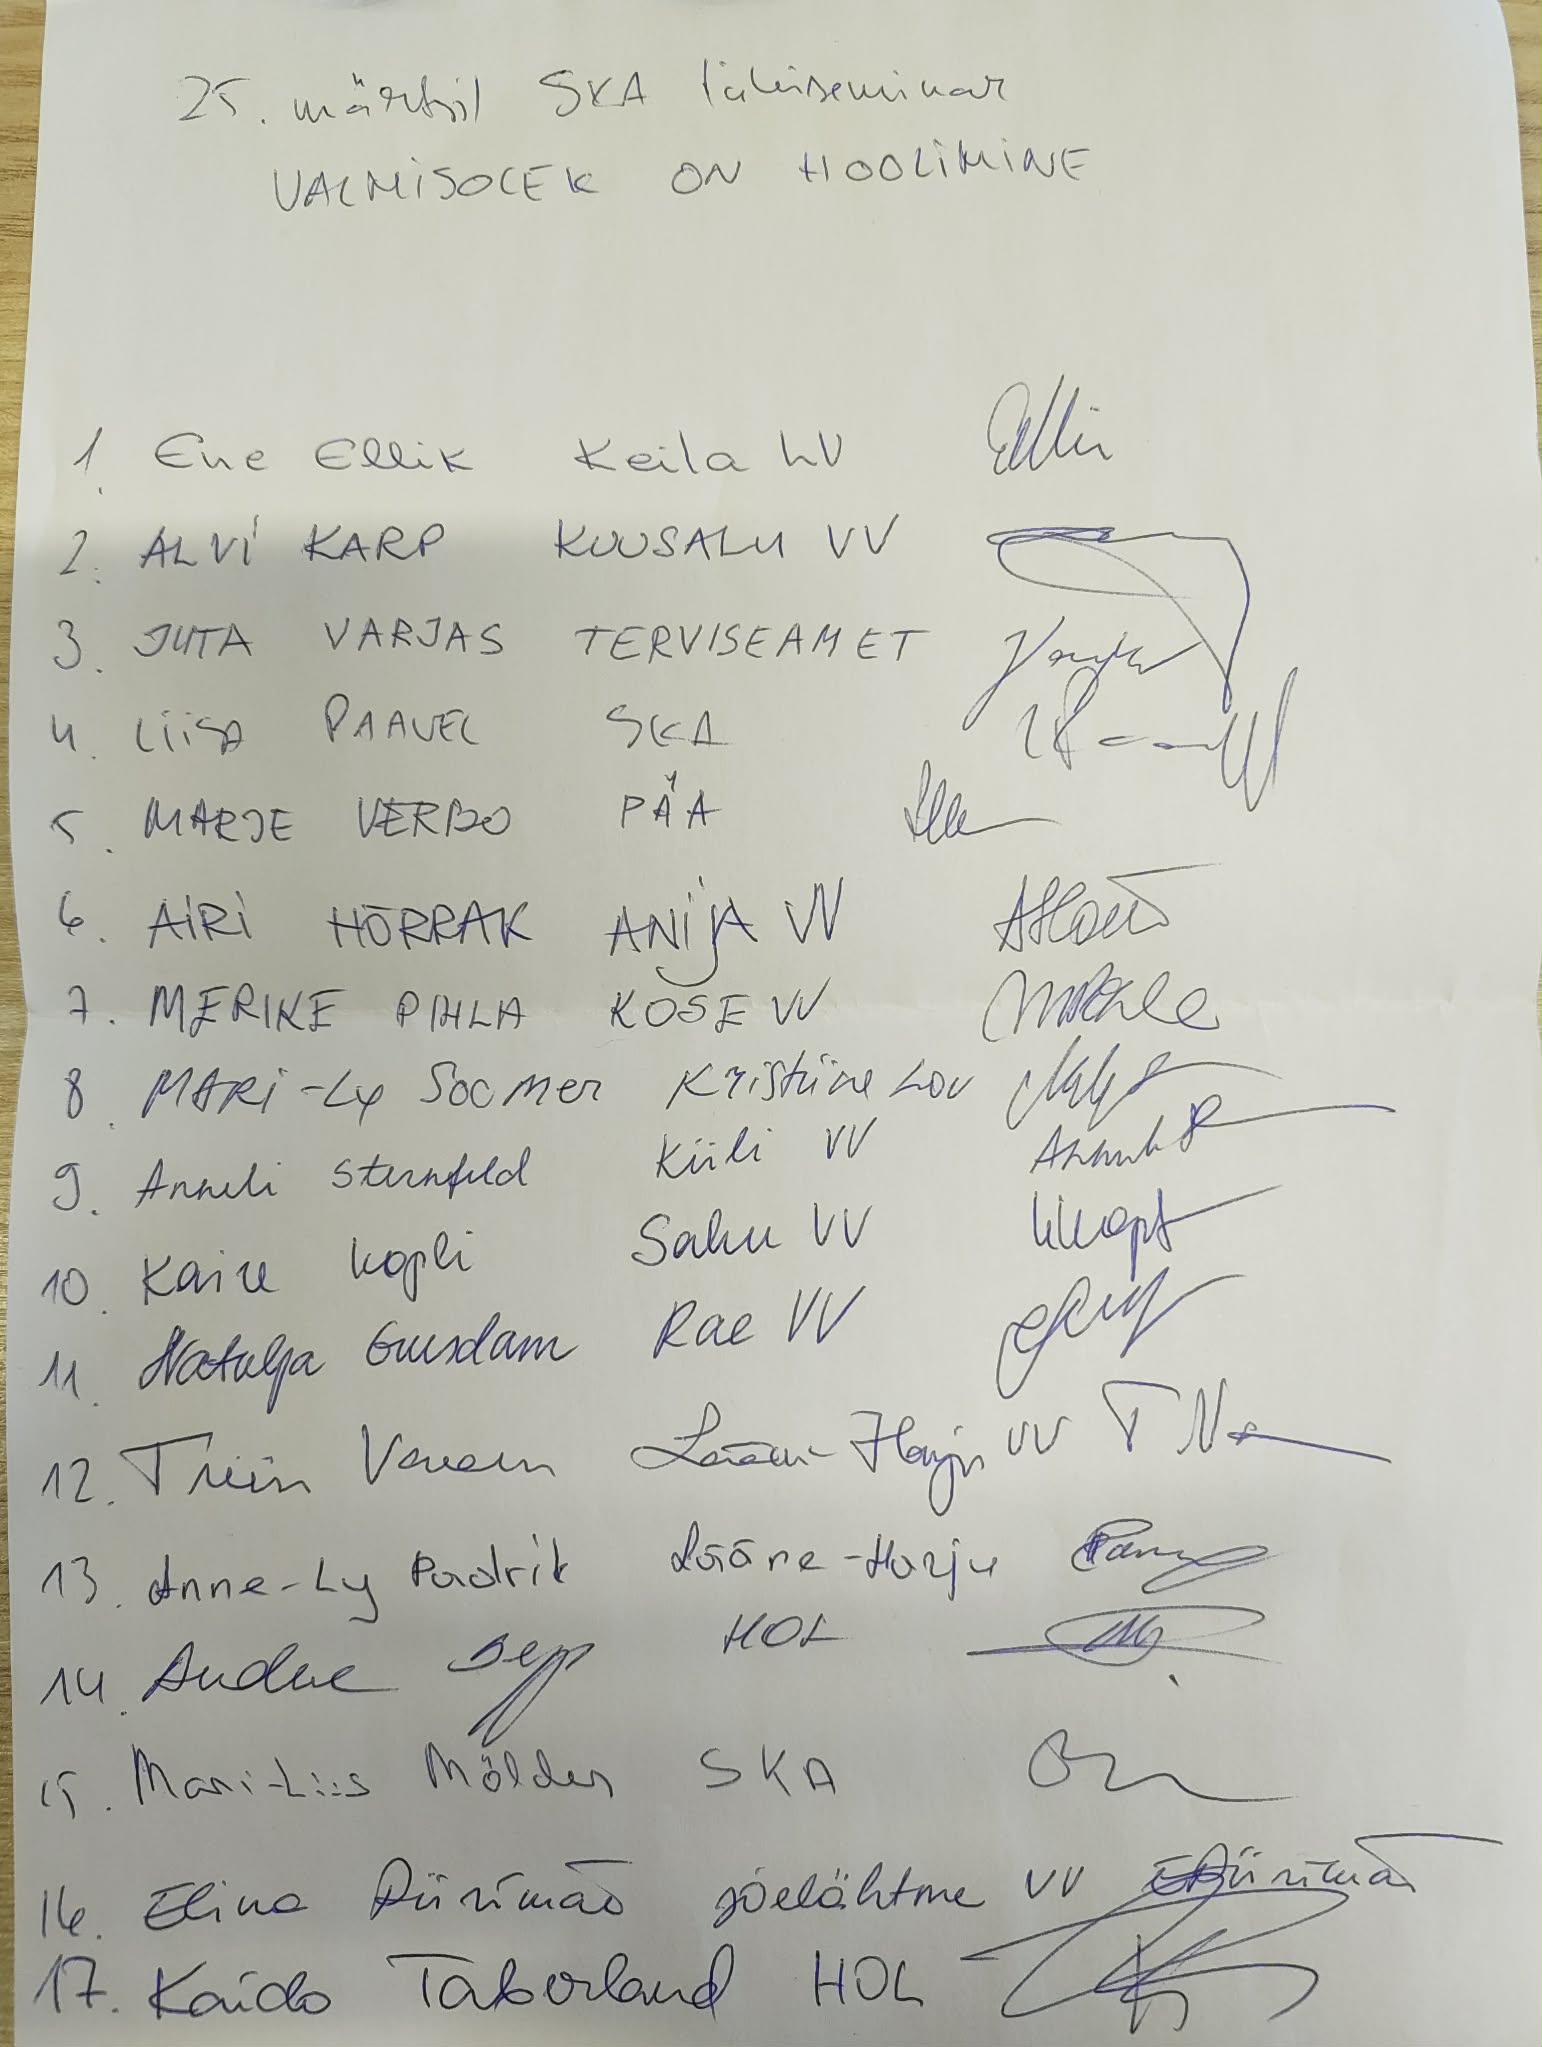 25. märtsil SKA ühisseminar
VALMISOLEK ON HOOLIMINE
1. Ene Ellik Keila LV
2. ALVI KARP KUUSALU VV
3. JUTA VARJAS TERVISEAMET
4. LIISA PAAVEL SKA
5. MARJE VERBO PÄA
6. AIRI HÕRRAK ANIJA VV
7. MERIKE PIHLA KOSE VV
8. MARI-Ly Soomer Kristiine LOV
9. Anneli Sternfeld Kiili VV
10. Kaire Kopli Saku VV
11. Natalja Rae VV
12. Triin Lääne-Harju VV
13. Anne-Ly Padrik Lääne-Harju
14. Andre Sepp HOL
15. Mari-Liis Mölder SKA
16. Elina Püürimäe Jõelähtme VV
17. Kaido Taberland HOL